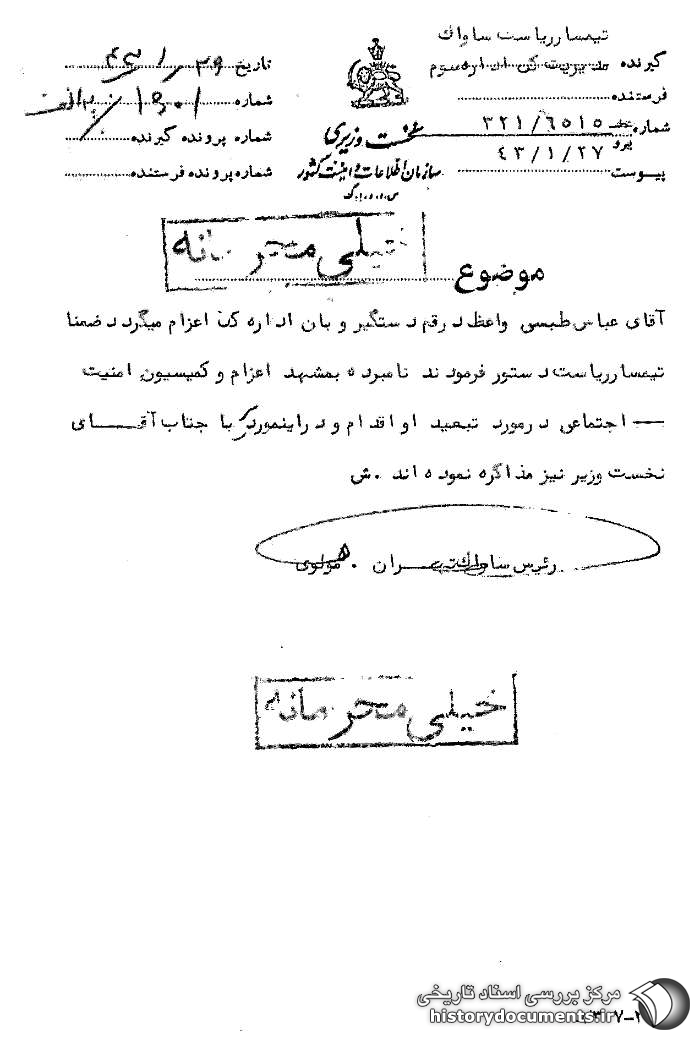 تیمسار ریاست ساواک
گیرنده مدیریت کل اداره سوم
فرستنده
شماره ۳۲۱/۶۵۱۵
پیرو ۴۳/۱/۲۷
پیوست
نخست وزیری
سازمان اطلاعات و امنیت کشور
س.ا.و.ا.ک
تاریخ ۴۳/۱/۲۹
شماره
شماره پرونده گیرنده
شماره پرونده فرستنده
خیلی محرمانه
موضوع
آقای عباس طبسی واعظ در قم دستگیر و بان اداره کل اعزام میگردد ضمنا
تیمسار ریاست دستور فرمودند نامبرده بمشهد اعزام و کمیسیون امنیت
اجتماعی در مورد تبعید او اقدام و در اینمورد با جناب آقای
نخست وزیر نیز مذاکره نموده اند .ش
رئیس ساواک تهران . مولوی
خیلی محرمانه
مرکز بررسی اسناد تاریخی
historydocuments.ir